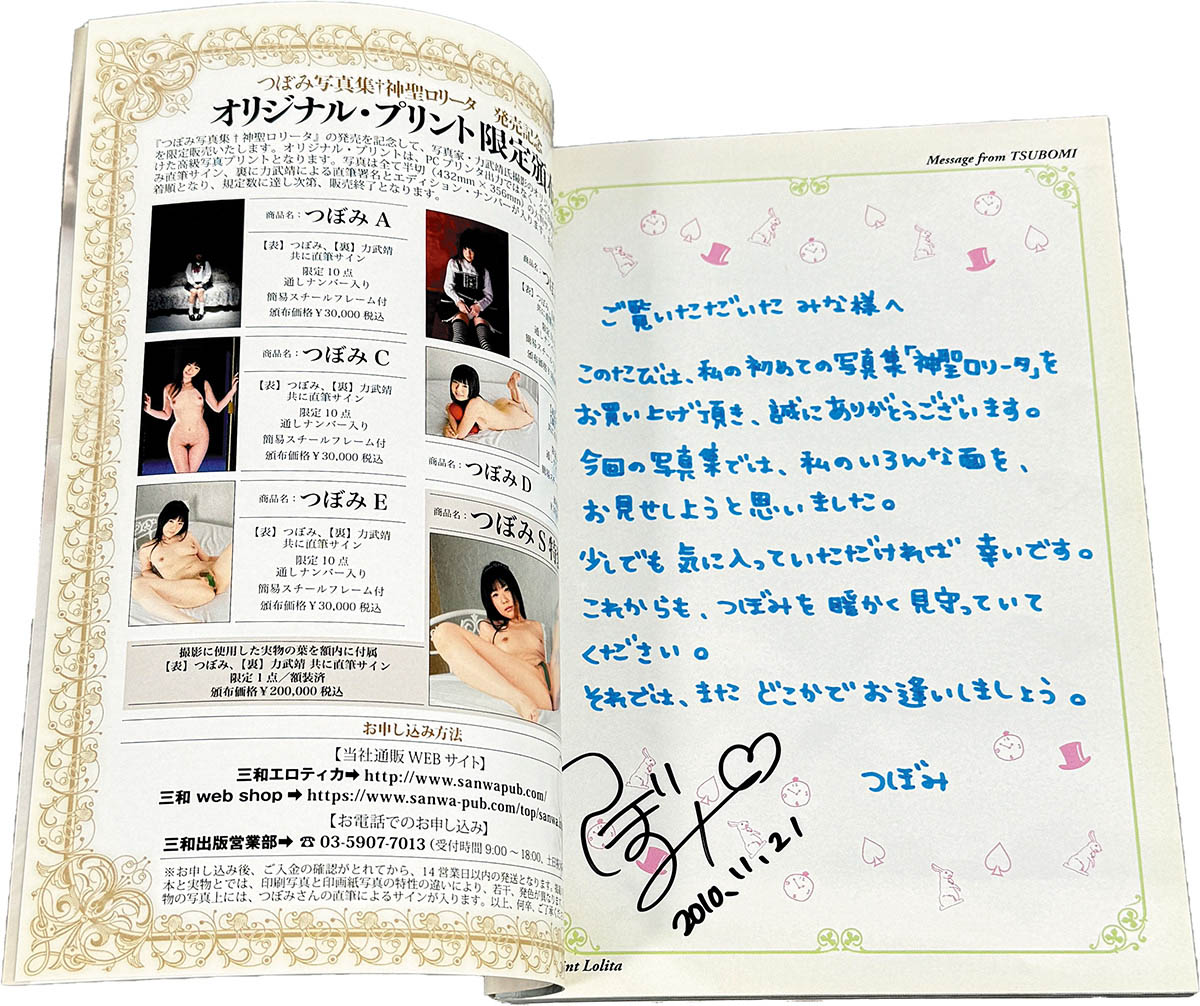 つぼみ写真集†神聖ロリータ 発売記念
オリジナル・プリント 限定
『つぼみ写真集†神聖ロリータ』の発売を記念して、写真家・力武靖氏撮影のオリ
を限定販売いたします。オリジナル・プリントは、PCプリンタ出力ではなく
けた高級写真プリントとなります。写真は全て半切（432mm×356mm）の
み直筆サイン、裏に力武靖による直筆署名とエディション・ナンバーが入ります。
着順となり、規定数に達し次第、販売終了となります。
商品名：つぼみA
【表】つぼみ、【裏】力武靖
共に直筆サイン
限定10点
通しナンバー入り
簡易スチールフレーム付
頒布価格￥30,000 税込
商品名：つぼみC
【表】つぼみ、【裏】力武靖
共に直筆サイン
限定10点
通しナンバー入り
簡易スチールフレーム付
頒布価格￥30,000 税込
商品名：つぼみD
商品名：つぼみE
【表】つぼみ、【裏】力武靖
共に直筆サイン
限定10点
通しナンバー入り
簡易スチールフレーム付
頒布価格￥30,000 税込
商品名：つぼみS
撮影に使用した実物の葉を額内に付属
【表】つぼみ、【裏】力武靖 共に直筆サイン
限定1点／額装済
頒布価格￥200,000 税込
お申し込み方法
【当社通販WEBサイト】
三和エロティカ➡http://www.sanwapub.com/
三和 web shop ➡ https://www.sanwa-pub.com/top/sanwa
【お電話でのお申し込み】
三和出版営業部➡ ☎ 03-5907-7013（受付時間9:00～18:00、土日
※お申し込み後、ご入金の確認がとれてから、14営業日以内の発送となります。
本と実物とでは、印刷写真と印画紙写真の特性の違いにより、若干、発色が異なります
物の写真上には、つぼみさんの直筆によるサインが入ります。以上、何卒、ご了承
Message from TSUBOMI
ご覧いただいた みな様へ
このたびは、私の初めての写真集「神聖ロリータ」を
お買い上げ頂き、誠にありがとうございます。
今回の写真集では、私のいろんな面を、
お見せしようと思いました。
少しでも 気に入っていただければ 幸いです。
これからも、つぼみを 暖かく 見守っていて
ください。
それでは、また どこかで お逢いしましょう。
つぼみ
つぼみ♡
2010.11.21
int Lolita